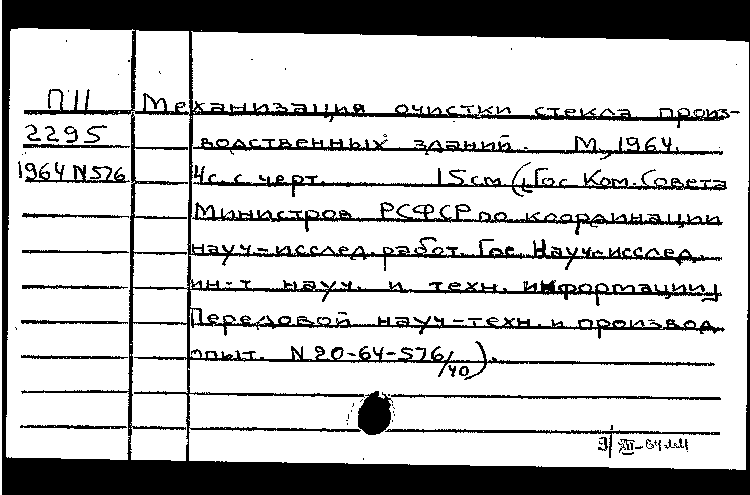 П11 Механизация очистки стекла произ-
2295 водственных зданий. М, 1964.
1964 N576 4с. с черт. 15см (Гос Ком. Совета
Министров РСФСР по координации
науч-исслед. работ. Гос. Науч-исслед.
ин-т науч. и техн. информации)
Передовой науч-техн. и производ.
опыт. N 20-64-576/40).